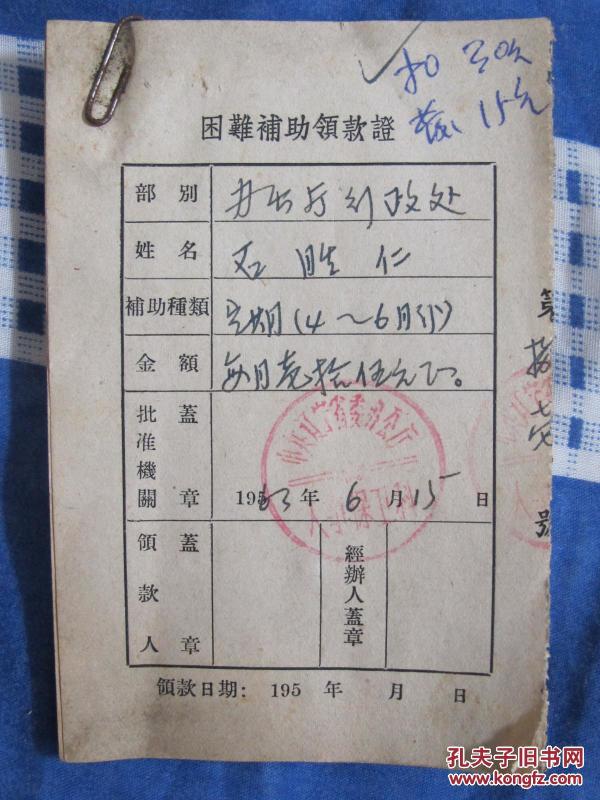 15元
困難補助領款證
部別 办公厅行政处
姓名 石胜仁
補助種類 定期(4~6月份)
金額 每月壹拾伍元正。
批准機關蓋章 1963年6月15日
中共辽宁省委办公厅
領款人蓋章 經辦人蓋章
領款日期: 195 年 月 日
第拾七 號
孔夫子旧书网
www.kongfz.com